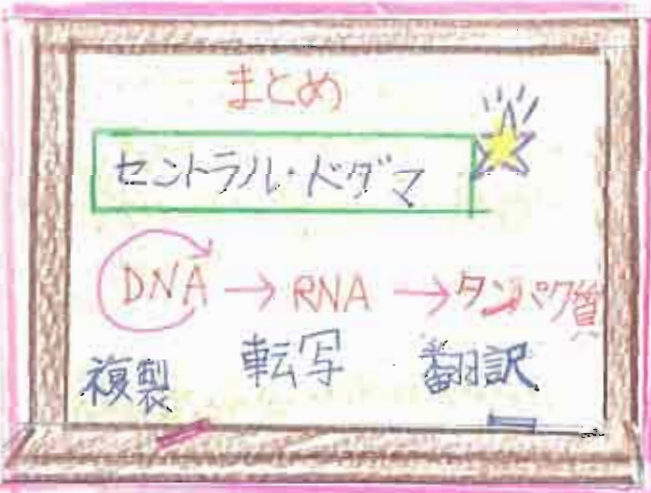 まとめ
セントラル・ドグマ
DNA → RNA → タンパク質
複製 転写 翻訳